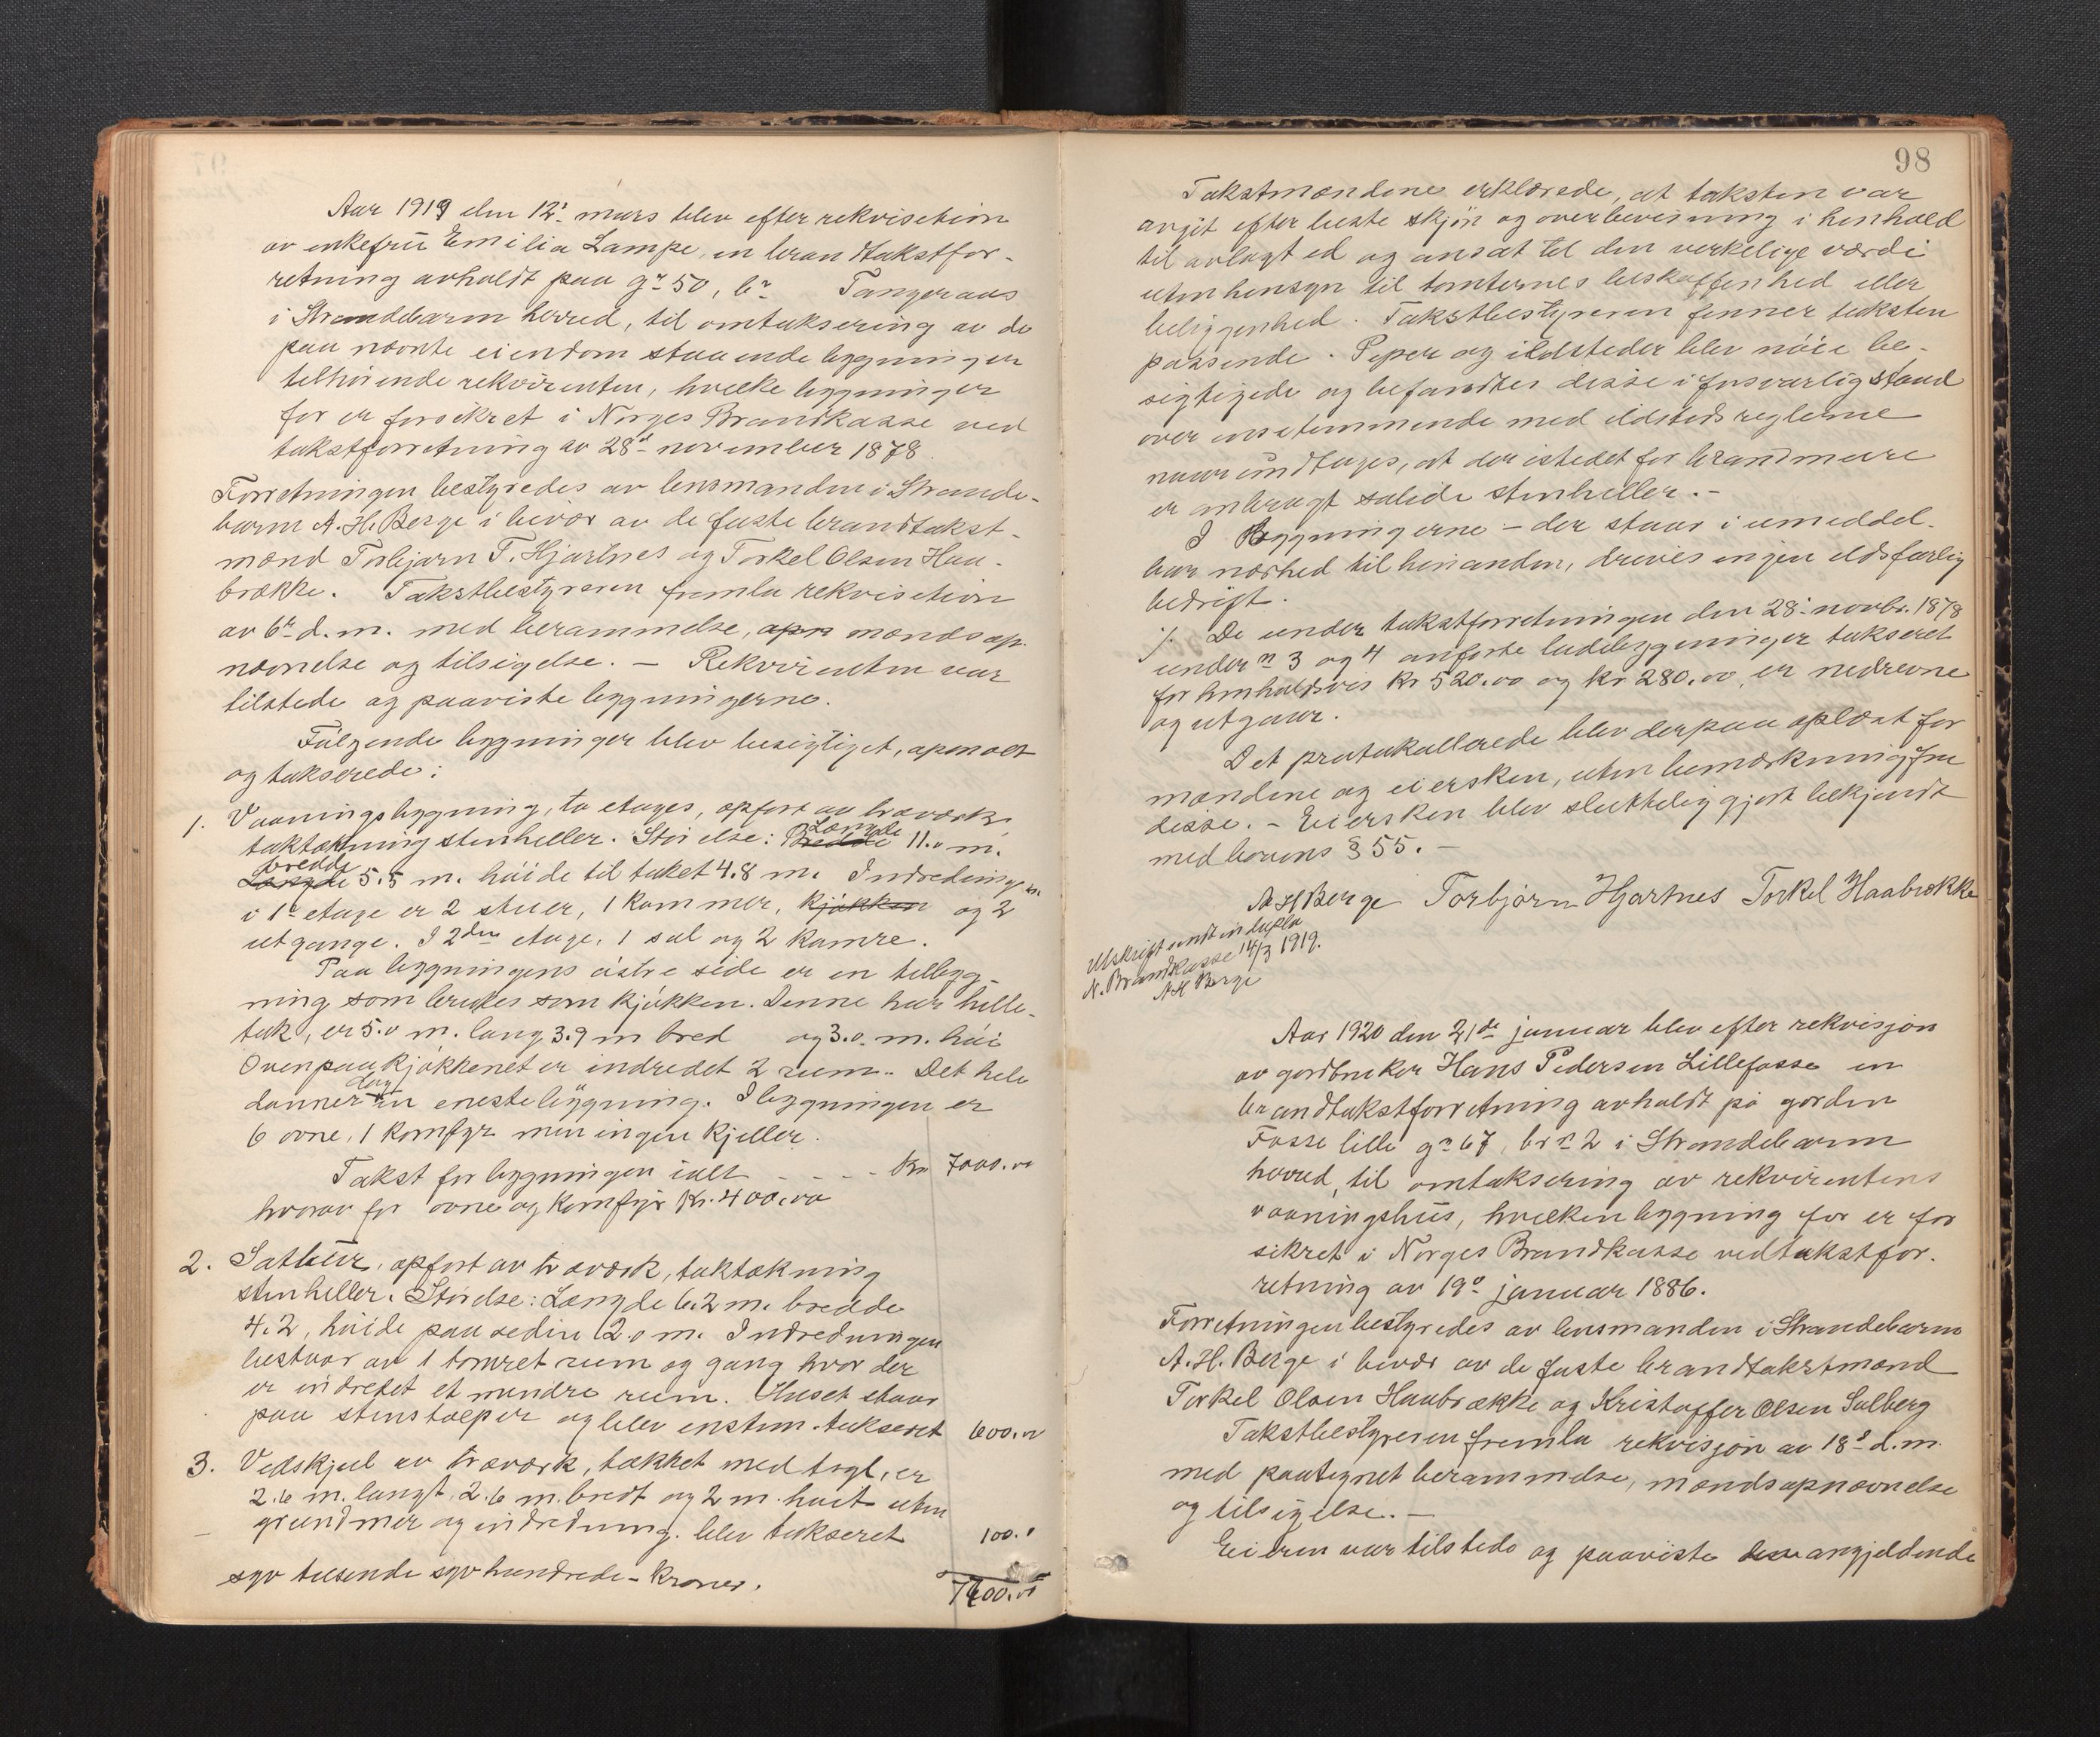 Aar 1919 den 12' mars blev efter rekvisetion
av enkefru Emilia Lampe, en brandtakstfor-
retning avholdt paa gn 50, bn Tangeraas
i Strandebarm herred, til omtaksering av de
paa nævnte eiendom staaende bygninger
tilhørende rekvirenten, hvilke bygninger
før er forsikret i Norges Brandkasse ved
takstforretning av 28d november 1878.
Forretningen bestyredes av lensmanden i Strande-
barm A. H. Berge i bevær av de faste brandtakst-
mænd Torbjørn T. Hjartnes og Torkel Olsen Haa-
brække. Takstbestyreren fremla rekvisetion
av 6te d. m. med berammelse, apn mændsop-
nævnelse og tilsigelse. — Rekvirenten var
tilstede og paaviste bygningerne.
Følgende bygninger blev besigtiget, opmaalt
og takserede:
1. Vaaningsbygning, to etages, opført av træværk,
taktækning stenheller. Störelse: Bredde Længde 11.0 m.
Længde bredde 5.5 m. høide til taket 4.8 m. Indredningen
i 1ste etage er 2 stuer, 1 kammer, kjøkken og 2
utgange. I 2den etage, 1 sal og 2 kamre.
Paa bygningens østre side er en tilbyg-
ning som brukes som kjøkken. Denne har helle-
tak, er 5.0 m. lang 3.9 m bred og 3.0. m. høi
Ovenpaa kjøkkenet er indredet 2 rum. Det hele
danner dog en eneste bygning. I bygningen er
6 ovne, 1 komfyr men ingen kjeller.
Takst for bygningen ialt - - - Kr 7000.00
hvorav for ovne og komfyr Kr. 400.00
2. Satbur, opført av træværk, taktækning
stenheller. Störelse: Længde 6.2 m. bredde
4.2, høide paa sedin 2.0 m. Indredningen
bestaar av 1 tømret rum og gang hvor der
er indredet et mindre rum. Huset staar
paa stenstolper og blev enstem. takseret 600.00
3. Vedskjul av træværk, tækket med tegl, er
2.6 m. langt, 2.6 m. bredt og 2 m. høit uten
grundmur og indredning. blev takseret 100."
syv tusende syv hundrede - kroner. 7700.00
98
Takstmændene erklærede, at taksten var
avgit efter beste skjøn og overbevisning i henhold
til avlagt ed og ansat til den verkelige værdi
uten hensyn til tomternes beskaffenhed eller
beliggenhed. Takstbestyreren finner taksten
passende. Peper og ildsteder blev nøie be-
sigtigede og befandtes disse i forsvarlig stand
overensstemmende med ildstedsreglerne
naar undtages, at der istedet for brandmure
er anbragt solide stenheller. -
I Bygningerne – der staar i umeddel-
bar nærhed til hinanden, drives ingen ildsfarlig
bedrift.
⁒ De under takstforretningen den 28' novbr. 1878
under n 3 og 4 anførte ladebygninger takseret
for henholdsvis Kr 520.00 og kr 280.00, er nedrevne
og utgaar.
Det protokollerede blev derpaa oplæst for
mændene og eiersken, uten bemærkning fra
disse. - Eiersken blev sluttelig gjort bekjendt
med lovens § 55. -
A H Berge Torbjørn Hjartnes Torkel Haabrække
Utskrift sendt in duplo
N. Brandkasse 14/3 1919.
A H Berge
Aar 1920 den 21de januar blev efter rekvisjon
av gardbruker Hans Pedersen Lillefosse en
brandtakstforretning avholdt på garden
Fosse lille gn 67, br n 2 i Strandebarm
herred, til omtaksering av rekvirentens
vaaningshus, hvilken bygning før er for
sikret i Norges Brandkasse ved takstfor-
retning av 19d januar 1886.
Forretningen bestyredes av lensmanden i Strandebarm
A. H. Berge i bevær av de faste brandtakstmænd
Torkel Olsen Haabrække og Kristoffer Olsen Solberg
Takstbestyreren fremla rekvisjon av 18d d. m.
med paategnet berammelse, mændsopnævnelse
og tilsigelse. —
Eieren var tilstede og paaviste den angjeldende